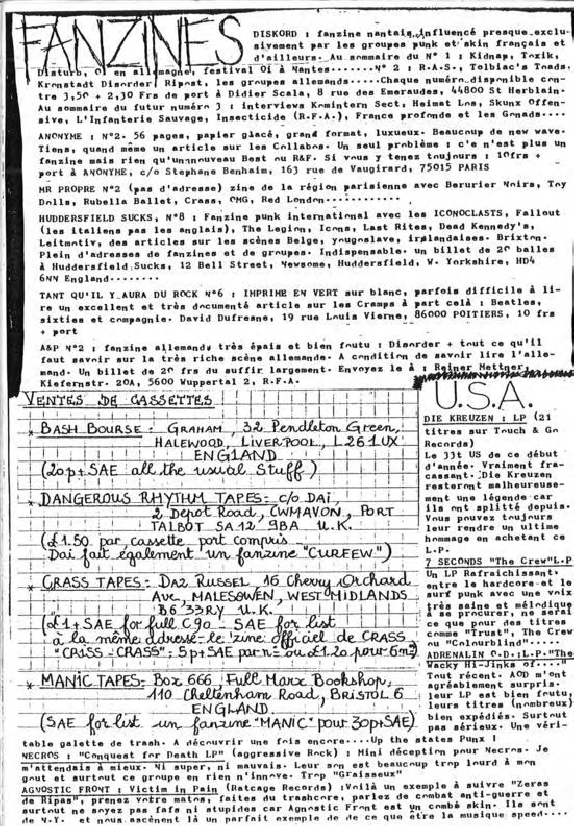 FANZINES
DISKORD : fanzine nantais, influencé presque exclu-
sivement par les groupes punk et skin français et
d'ailleurs. Au sommaire du N° 1 : Kidnap, Toxik,
Disturb, Oi en allemagne, festival Oi à Nantes.......N° 2 : R.A.S., Tolbiac's Toads,
Kronstadt Disorder, Ripost, les groupes allemands.....Chaque numéro disponible con-
tre 3,50 + 2,30 Frs de port à Didier Scala, 8 rue des Emeraudes, 44800 St Herblain.
Au sommaire du futur numéro 3 : interviews Komintern Sect, Heimat Los, Skunx Offen-
sive, L'Infanterie Sauvage, Insecticide (R.F.A.), France profonde et les Gonads....
ANONYME : N°2- 56 pages, papier glacé, grand format, luxueux. Beaucoup de new wave.
Tiens, quand même un article sur les Collabos. Un seul problème : c'e n'est plus un
fanzine mais rien qu'unnnouveau Best ou R&F. Si vous y tenez toujours : 10frs +
port à ANONYME, c/o Stephane Benhaim, 163 rue de Vaugirard, 75015 PARIS
MR PROPRE N°2 (pas d'adresse) zine de la région parisienne avec Berurier Noirs, Toy
Dolls, Rubella Ballet, Crass, OMG, Red London............
HUDDERSFIELD SUCKS, N°8 : Fanzine punk international avec les ICONOCLASTS, Fallout
(les italiens pas les anglais), The Legion, Icons, Last Rites, Dead Kennedy's,
Leitmotiv, des articles sur les scènes Belge, yougoslave, irlandaises. Brixton.
Plein d'adresses de fanzines et de groupes. Indispensable. un billet de 20 balles
à Huddersfield Sucks, 12 Bell Street, Newsome, Huddersfield, W. Yorkshire, HD4
6NN England........
TANT QU'IL Y AURA DU ROCK N°6 : IMPRIME EN VERT sur blanc, parfois difficile à li-
re un excellent et très documenté article sur les Cramps à part celà : Beatles,
sixties et compagnie. David Dufresne, 19 rue Louis Vierne, 86000 POITIERS, 10 frs
+ port
A&P N°2 : fanzine allemands très épais et bien foutu : Disorder + tout ce qu'il
faut savoir sur la très riche scène allemande. A condition de savoir lire l'alle-
mand. Un billet de 20 frs du suffir largement. Envoyez le à : Reiner Mettner,
Kiefernstr. 20A, 5600 Wuppertal 2, R.F.A.
VENTES DE CASSETTES
* BASH BOURSE - GRAHAM, 32 Pendleton Green,
HALEWOOD, LIVERPOOL, L26 1UX
ENGLAND
(20p + SAE all the usual stuff.)
* DANGEROUS RHYTHM TAPES - c/o DAI,
2 Depot Road, CWMAVON, PORT
TALBOT SA.12 9BA U.K.
(£1.50 par cassette port compris
Dai fait également un fanzine "CURFEW")
* GRASS TAPES - DAZ RUSSEL, 16 Cherry Orchard
Ave, MALESOWEN, WEST MIDLANDS
B6 33RY U.K.
(£1 + SAE for full C90 - SAE for list
à la même addresse - le 'zine officiel de CRASS
"CRISS-CRASS"; 5p + SAE par n° ou £1.20 pour 6 n°)
* MANIC TAPES - BOX 666, Full Marx Bookshop,
110 Cheltenham Road, BRISTOL 6
ENGLAND
(SAE for list un fanzine "MANIC" pour 30p+SAE)
U.S.A.
DIE KREUZEN : LP (21
titres sur Touch & Go
Records)
Le 33t US de ce début
d'année. Vraiment fra-
cassant. Die Kreuzen
resteront malheureuse-
ment une légende car
ils ont splitté depuis.
Vous pouvez toujours
leur rendre un ultime
hommage en achetant ce
L.P.
7 SECONDS "The Crew"L.P
Un LP Rafraichissant.
entre le hardcore et le
surf punk avec une voix
très saine et mélodique
à se procurer, ne serai
ce que pour des titres
comme "Trust", The Crew
ou "Colourblind"....
ADRENALIN O.D : L.P "The
Wacky Hi-Jinks of...."
Tout récent. AOD m'ont
agréablement surpris.
leur LP est bien foutu,
leurs titres (nombreux)
bien expédiés. Surtout
pas sérieux. Une véri-
table galette de trash. A découvrir une fois encore....Up the states Punx !
NECROS : "Conquest for Death LP" (aggressive Rock) : Mini déception pour Necros. Je
m'attendais à mieux. Ni super, ni mauvais. Leur son est beaucoup trop lourd à mon
gout et surtout ce groupe en rien n'innove. Trop "Graisseux"
AGNOSTIC FRONT : Victim in Pain (Ratcage Records) :Voilà un exemple à suivre "Zeros
de Ripas", prenez votre matos, faites du trashcore, parlez de combat anti-guerre et
surtout ne soyez pas fafs ni stupides car Agnostic Front est un combé skin. Ils sont
de N.Y. et nous ascènent là un parfait exemple de de ce que etre la musique speed....